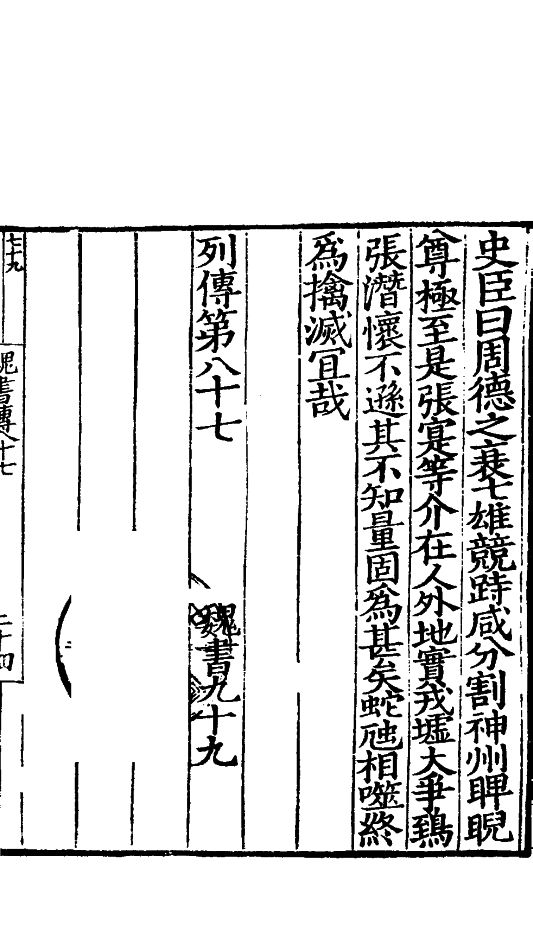 史臣曰周德之衰七雄競跱咸分割神州睥睨
尊極至是張寔等介在人外地實戎墟大爭鵄
張潛懷不遜其不知量固為甚矣蛇虺相噬終
為擒滅冝哉
列傳第八十七
魏書九十九
七十九
魏書傳八十七
二十四